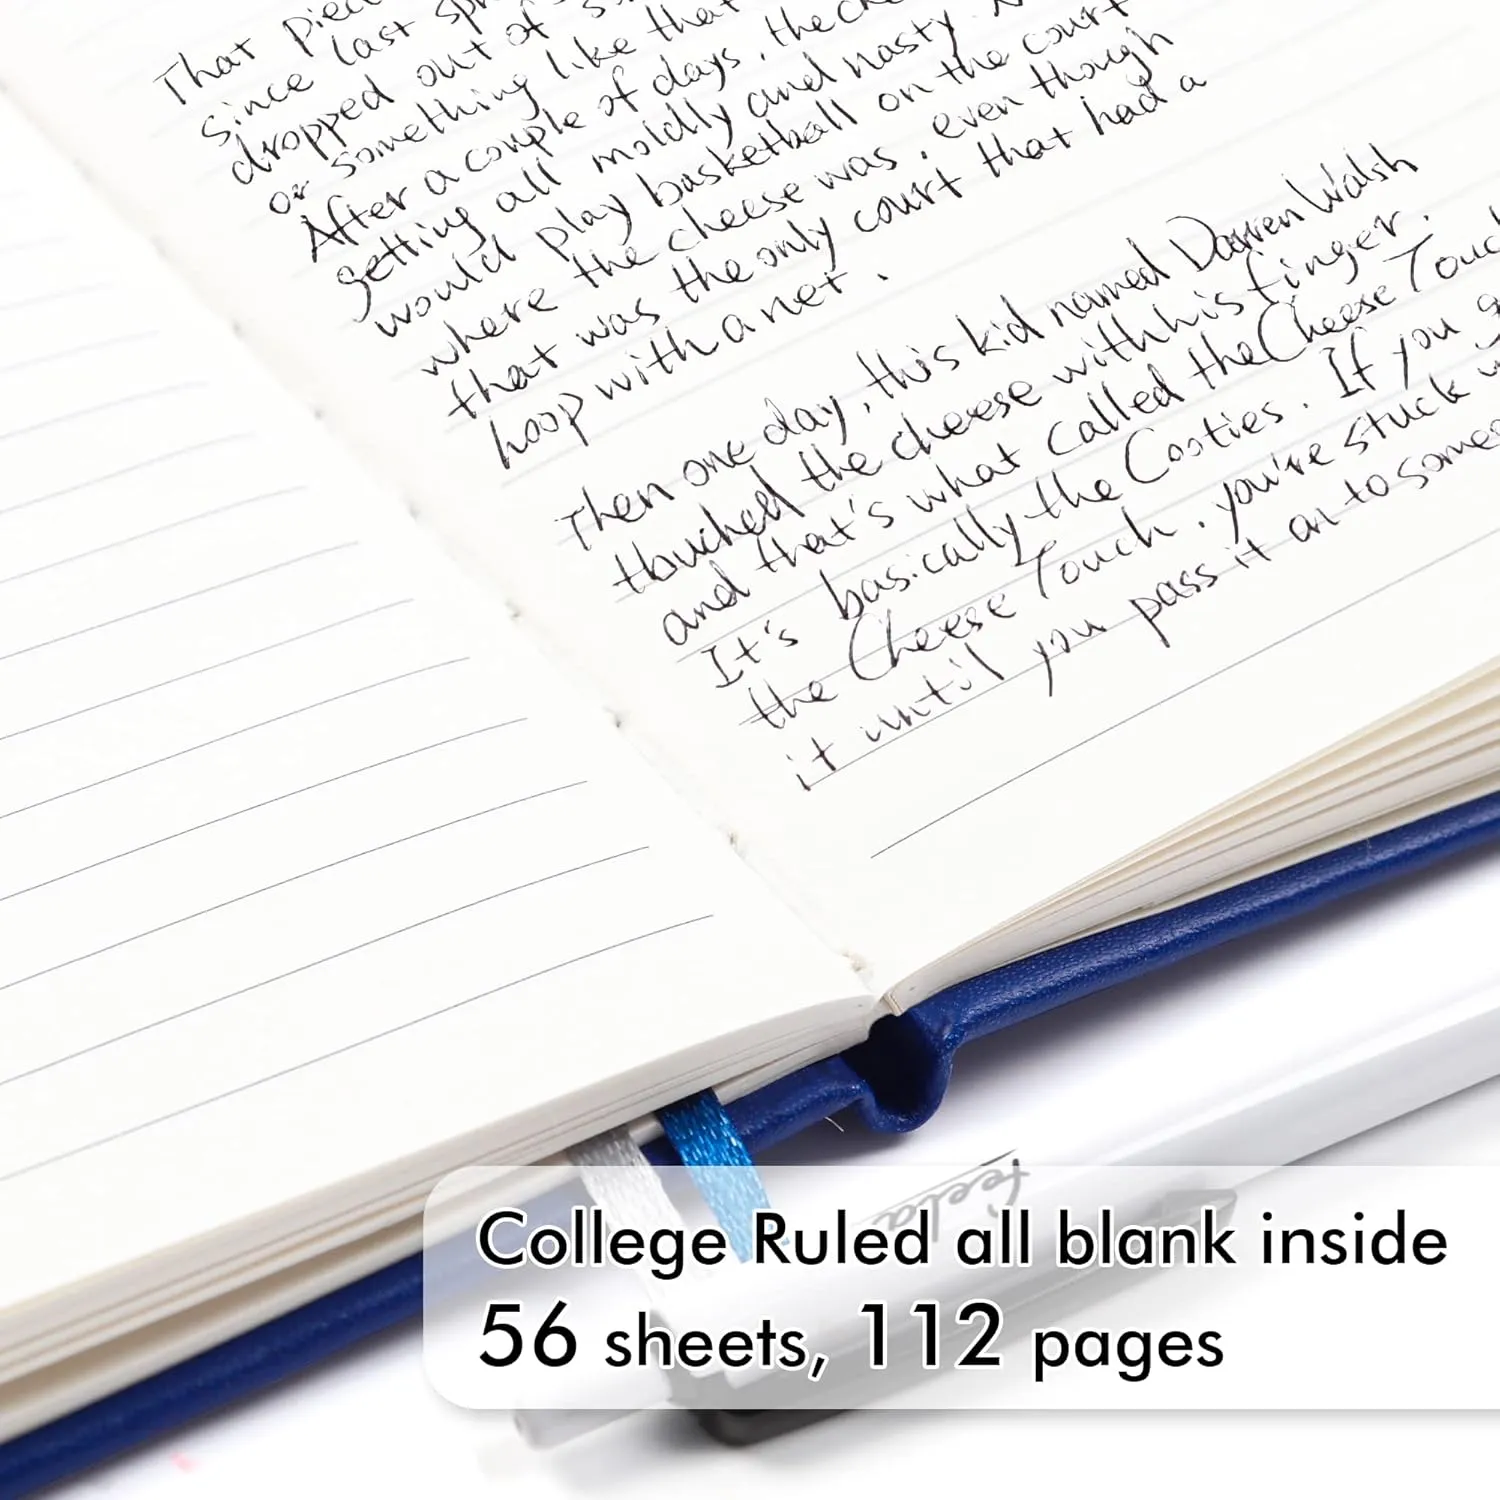 That piec
since last spr
dropped out of s
or something like that
After a couple of days, the che
getting all moldly and nasty.
would play basketball on the court
where the cheese was, even though
that was the only court that had a
hoop with a net.
Then one day, this kid named Darren Walsh
touched the cheese with his finger.
and that's what called the Cheese Touch
It's basically the Cooties. If you g
the Cheese Touch, you're stuck w
it until you pass it on to someo
feela
College Ruled all blank inside
56 sheets, 112 pages